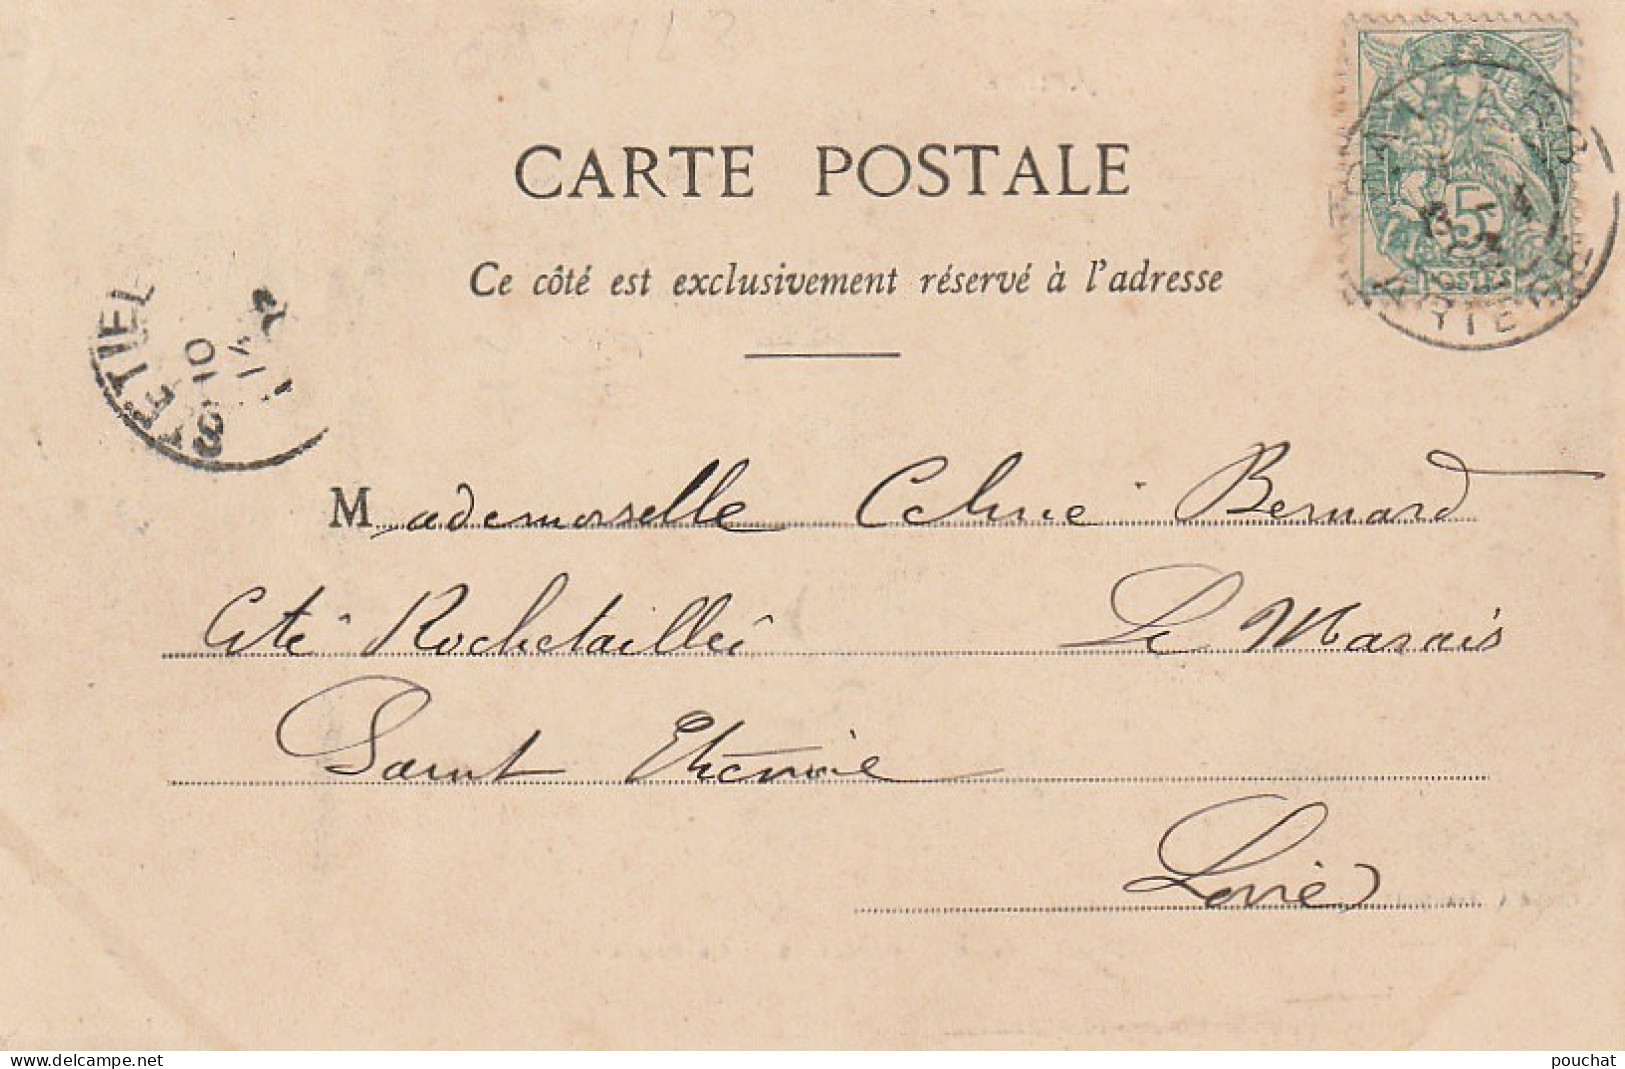 CARTE POSTALE
Ce côté est exclusivement réservé à l'adresse
5
POSTES
ARIÈGE
ST ETIE
10
Mademoiselle Celine Bernard
Cité Rochetaillée Le Marais
Saint Etienne
Loire
www.delcampe.net
pouchat